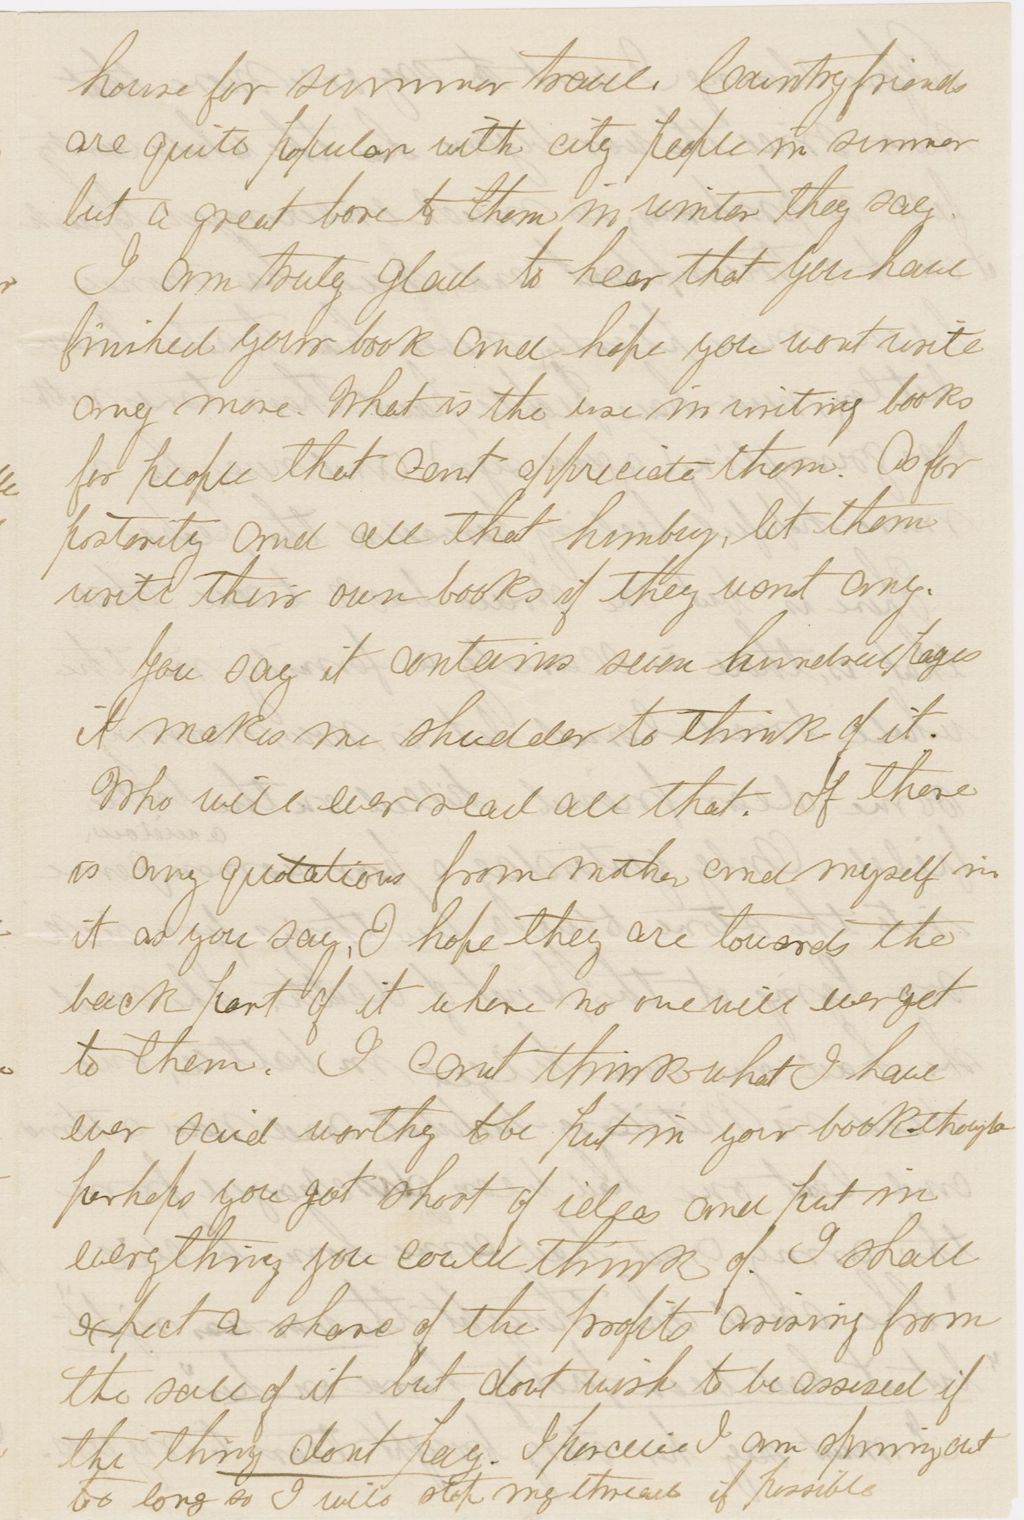 house for summer travel. Country friends
are quite popular with city people in summer
but a great bore to them in winter they say.
I am truly glad to hear that you have
finished your book and hope you wont write
any more. What is the use in writing books
for people that cant appreciate them. As for
posterity and all that humbug, let them
write their own books if they want any.
You say it contains seven hundred pages
it makes me shudder to think of it.
Who will ever read all that. If there
is any quotations from mother and myself in
it as you say, I hope they are towards the
back part of it where no one will ever get
to them. I cant think what I have
ever said worthy to be put in your book though
perhaps you got short of ideas and put in
everything you could think of. I shall
expect a share of the profits arising from
the sale of it but dont wish to be assessed if
the thing dont pay. I perceive I am spinning out
too long so I will stop my thread if possible